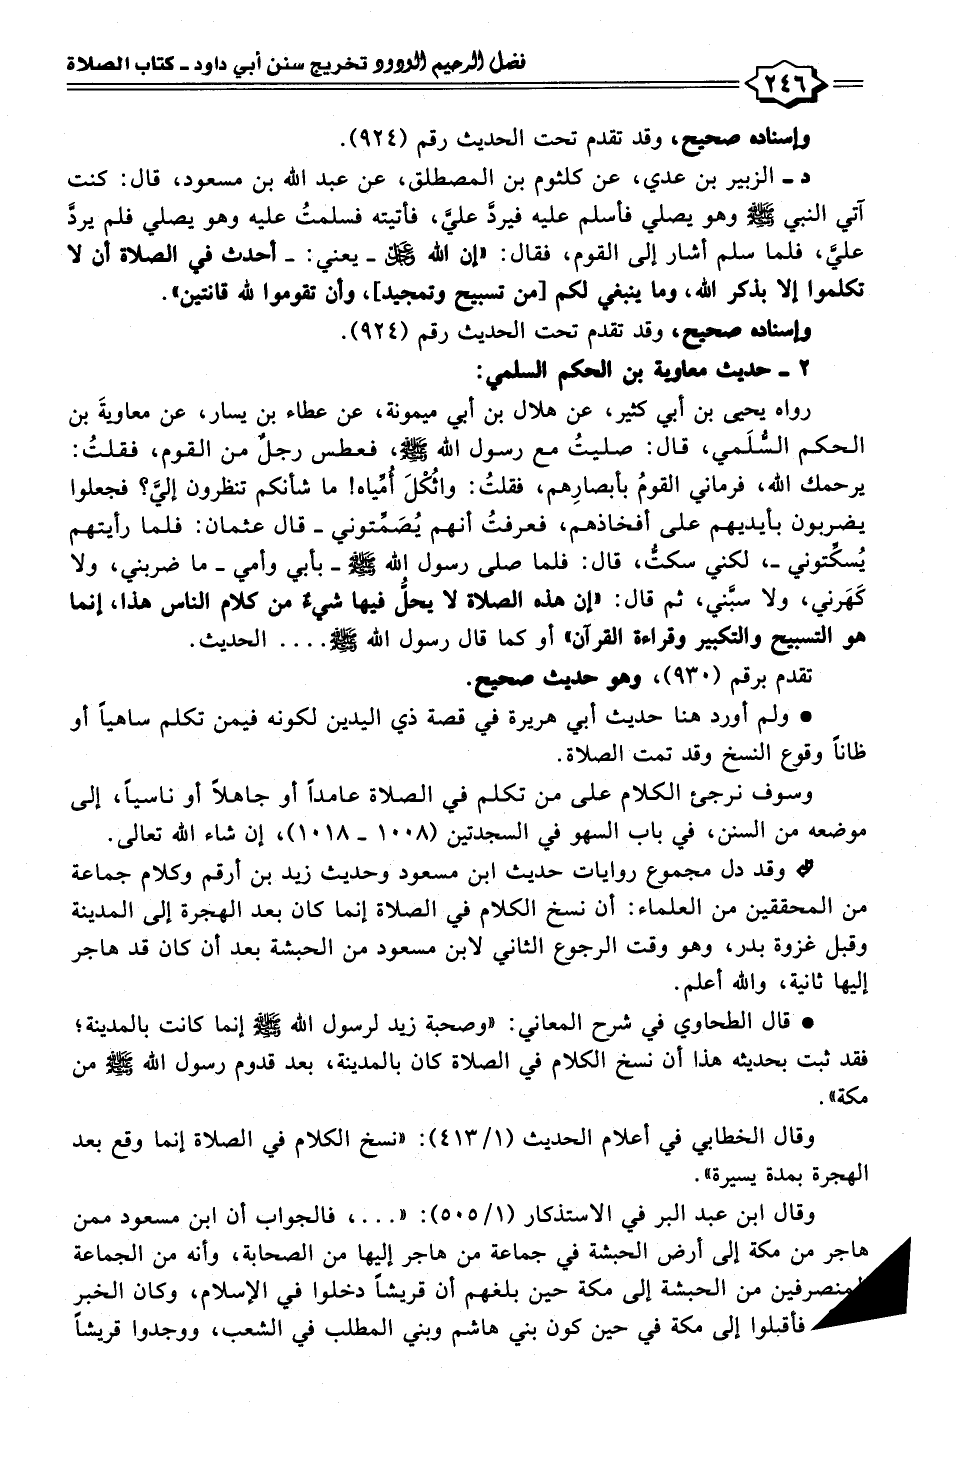 فضل الرحيم الودود تخريج سنن أبي داود ـ كتاب الصلاة
٢٤٦
وإسناده صحيح، وقد تقدم تحت الحديث رقم (٩٢٤).
د ـ الزبير بن عدي، عن كلثوم بن المصطلق، عن عبد الله بن مسعود، قال: كنت
آتي النبي ﷺ وهو يصلي فأسلم عليه فيردَّ عليَّ، فأتيته فسلمتُ عليه وهو يصلي فلم يردَّ
عليَّ، فلما سلم أشار إلى القوم، فقال: «إن الله ﷻ ـ يعني: ـ أحدث في الصلاة أن لا
تكلموا إلا بذكر الله، وما ينبغي لكم [من تسبيح وتمجيد]، وأن تقوموا لله قانتين».
وإسناده صحيح، وقد تقدم تحت الحديث رقم (٩٢٤).
٢ ـ حديث معاوية بن الحكم السلمي:
رواه يحيى بن أبي كثير، عن هلال بن أبي ميمونة، عن عطاء بن يسار، عن معاويةَ بن
الحكم السُّلَمي، قال: صليتُ مع رسول الله ﷺ، فعطس رجلٌ من القوم، فقلتُ:
يرحمك الله، فرماني القومُ بأبصارِهم، فقلتُ: واثُكْلَ أُمِّياه! ما شأنكم تنظرون إليَّ؟ فجعلوا
يضربون بأيديهم على أفخاذهم، فعرفتُ أنهم يُصَمِّتوني ـ قال عثمان: فلما رأيتهم
يُسكِّتوني ـ، لكني سكتُّ، قال: فلما صلى رسول الله ﷺ ـ بأبي وأمي ـ ما ضربني، ولا
كَهَرني، ولا سبَّني، ثم قال: «إن هذه الصلاة لا يحلُّ فيها شيءٌ من كلام الناس هذا، إنما
هو التسبيح والتكبير وقراءة القرآن» أو كما قال رسول الله ﷺ.... الحديث.
تقدم برقم (٩٣٠)، وهو حديث صحيح.
● ولم أورد هنا حديث أبي هريرة في قصة ذي اليدين لكونه فيمن تكلم ساهياً أو
ظاناً وقوع النسخ وقد تمت الصلاة.
وسوف نرجئ الكلام على من تكلم في الصلاة عامداً أو جاهلاً أو ناسياً، إلى
موضعه من السنن، في باب السهو في السجدتين (١٠٠٨ ـ ١٠١٨)، إن شاء الله تعالى.
وقد دل مجموع روايات حديث ابن مسعود وحديث زيد بن أرقم وكلام جماعة
من المحققين من العلماء: أن نسخ الكلام في الصلاة إنما كان بعد الهجرة إلى المدينة
وقبل غزوة بدر، وهو وقت الرجوع الثاني لابن مسعود من الحبشة بعد أن كان قد هاجر
إليها ثانية، والله أعلم.
● قال الطحاوي في شرح المعاني: «وصحبة زيد لرسول الله ﷺ إنما كانت بالمدينة؛
فقد ثبت بحديثه هذا أن نسخ الكلام في الصلاة كان بالمدينة، بعد قدوم رسول الله ﷺ من
مكة».
وقال الخطابي في أعلام الحديث (٤١٣/١): «نسخ الكلام في الصلاة إنما وقع بعد
الهجرة بمدة يسيرة».
وقال ابن عبد البر في الاستذكار (٥٠٥/١): «...، فالجواب أن ابن مسعود ممن
هاجر من مكة إلى أرض الحبشة في جماعة من هاجر إليها من الصحابة، وأنه من الجماعة
المنصرفين من الحبشة إلى مكة حين بلغهم أن قريشاً دخلوا في الإسلام، وكان الخبر
فأقبلوا إلى مكة في حين كون بني هاشم وبني المطلب في الشعب، ووجدوا قريشاً